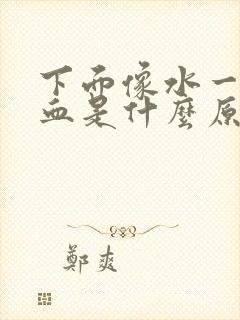 下面像水一
血是什麼原
鄭爽